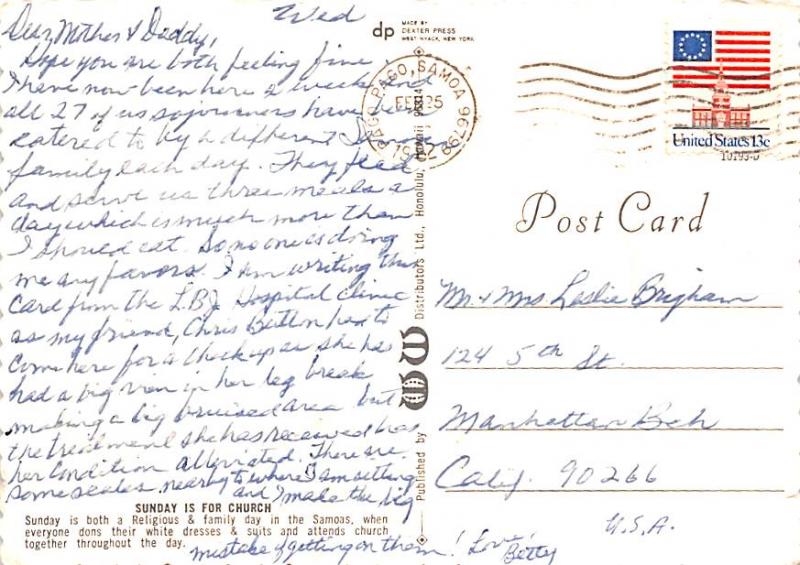 Wed
Dear Mother & Daddy,
Hope you are both feeling fine.
I have now been here 2 weeks and
all 27 of us sojourners have been
catered to by a different Samoan
family each day. They feed
and serve us three meals a
day which is much more than
I should eat. So no one is doing
me any favors. I am writing this
card from the L.B.J. Hospital clinic
as my friend, Chris Britton had to
come here for a check up as she has
had a big vein in her leg break
making a big bruised area but
the treatment she has received has
her condition alleviated. There are
some scales nearby to where I am sitting
and I made the big
mistake of getting on them! Love, Betty
SUNDAY IS FOR CHURCH
Sunday is both a Religious & family day in the Samoas, when
everyone dons their white dresses & suits and attends church
together throughout the day.
dp
MADE BY
DEXTER PRESS
WEST NYACK, NEW YORK
PAGO PAGO, SAMOA 96799
FEB 25
Published by WW Distributors Ltd., Honolulu, Hawaii 96814
United States 13c
10793-D
Post Card
Mr. & Mrs Leslie Brigham
124 5th St.
Manhattan Bch
Calif. 90266
U.S.A.